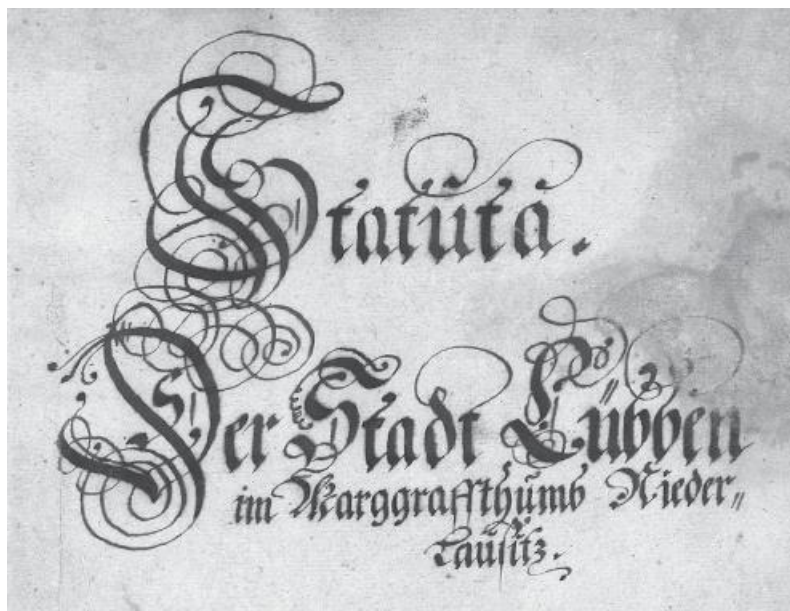 Statuta.
Der Stadt Lübben
im Marggraffthumb Nieder„
Lausitz.